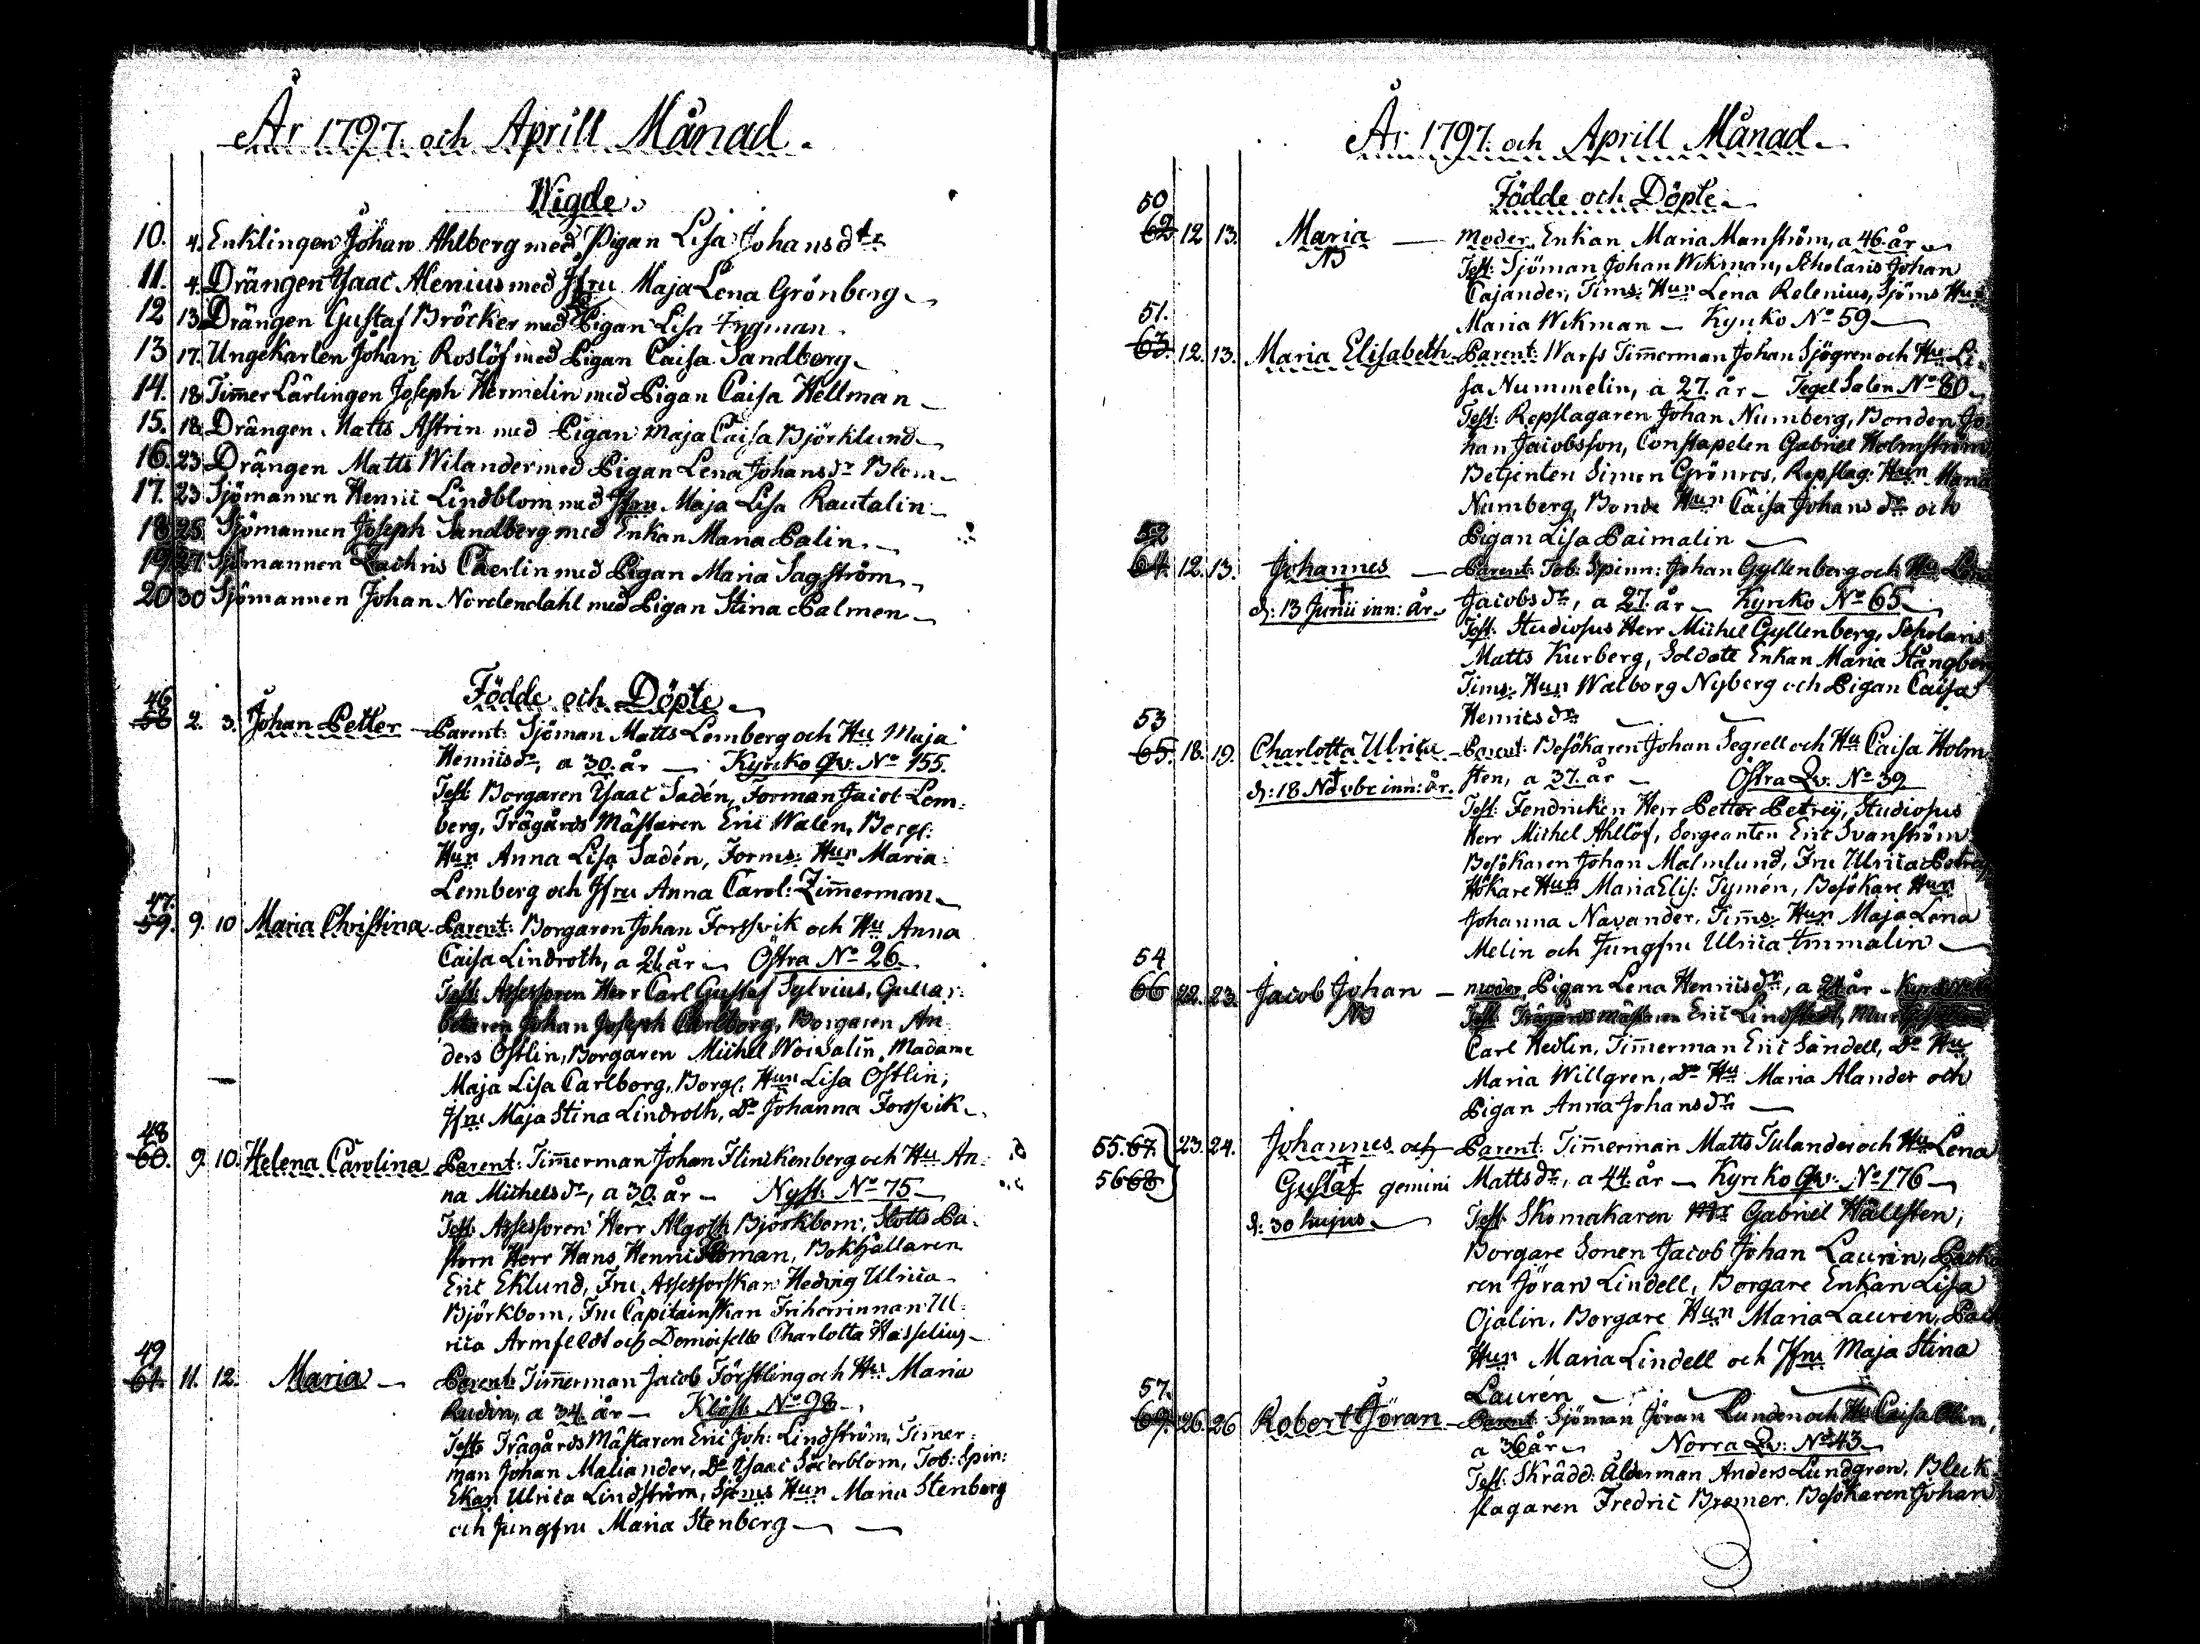 År 1797. och Aprill Månad.
Wigde.
10. 4. Enklingen Johan Ahlberg med Pigan Lisa Johansdtr
11. 4. Drängen Ysaac Alenius med Jfru Maja Lena Grönberg
12 13. Drängen Gustaf Bröcker med Pigan Lisa Ingman.
13 17. Ungekarlen Johan Roslöf med Pigan Caisa Sandberg
14. 18. Timmer Lärlingen Joseph Hermelin med Pigan Caisa Hellman
15. 18. Drängen Matts Astrin med Pigan Maja Caisa Björklund
16. 23. Drängen Matts Wilander med Pigan Lena Johansdr Blom
17. 23 Sjömannen Henric Lindblom med Jfru Maja Lisa Rautalin
18 25 Sjömannen Joseph Sandberg med Enkan Maria Palin.
19 27 Sjömannen Zachris Caerlin med Pigan Maria Sagström
20 30 Sjömannen Johan Nordendahl med Pigan Stina Palmen
Födde och Döpte
46
58 2. 3. Johan Petter Parent: Sjöman Matts Lemberg och Hu Maja
Henricsdr, a 30. år Kyrko Qv: No 155.
Test: Borgaren Ysaac Sadén, Forman Jacob Lem:
berg, Trägårds Mästaren Eric Walen, Borgs:
Hur Anna Lisa Sadén, Forms. Hur Maria
Lemberg och Jfru Anna Carol: Zimmerman
47.
59. 9. 10 Maria Christina Parent: Borgaren Johan Forssvik och Hu Anna
Caisa Lindroth, a 21. år Östra No 26
Test: Assessoren Herr Carl Gustaf Sylvius, Gullar:
betaren Johan Joseph Carlborg, Borgaren An
ders Östlin, Borgaren Michel Woivalin, Madame
Maja Lisa Carlborg, Borgs: Hur Lisa Östlin,
Jfru Maja Stina Lindroth, Do Johanna Forssvik
48
60. 9. 10. Helena Carolina Parent: Timmerman Johan Flinckenberg och Hu An:
na Michelsdr, a 30. år Nyst: No 75
Test: Assessoren Herr Algoth Björkbom, Slotts Pa
storn Herr Hans Henric Boman, Bokhållaren
Eric Eklund, Fru Assessorskan Hedvig Ulrica
Björkbom, Fru Capitainskan Friherrinnan Ul:
rica Armfeldt och Demoiselle Charlotta Hasselius
49
61. 11. 12. Maria Parent: Timmerman Jacob Förstling och Hu Maria
Rudin, a 34. år Klöst. No 98
Test: Trägårds Mästaren Eric Joh: Lindström, Timer:
man Johan Maliander, Do Ysaac Söderblom, Tob: Spin:
Ekan Ulrica Lindström, Sjöms Hur Maria Stenberg
och Jungfru Maria Stenberg
År 1797. och Aprill Månad
Födde och Döpte
50
62 12 13. Maria moder, Enkan Maria Manström, a 46. år
NB Test: Sjöman Johan Wikman, Scholaris Johan
Cajander, Tims: Hur Lena Relenius, Sjöms Hur
51. Maria Wikman Kyrko No 59
63. 12. 13. Maria Elisabeth Parent: Warfs Timerman Johan Sjögren och Hu Li:
sa Nummelin, a 27. år Tegel Salen No 80
Test: Repslagaren Johan Numberg, Bonden Jo
han Jacobsson, Constapelen Gabriel Holmström
Betjenten Simon Grönros, Repslag: Hur Maria
Numberg, Bonde Hur Caisa Johansdr och
52 Pigan Lisa Paimalin
64. 12. 13. Johannes Parent: Tob: Spinn: Johan Gyllenberg och Hu Lena
d: 13 Junii inn: år. Jacobsdr, a 27. år Kyrko No 65
Test: Studiosus Herr Michel Gyllenberg, Scholaris
Matts Kurberg, Soldate Enkan Maria Stångberg
Tims: Hur Walborg Nyberg och Pigan Caisa
53 Henricsdr
65. 18. 19. Charlotta Ulrica Parent: Besökaren Johan Segrell och Hu Caisa Holm
d: 18 Novbr inn: år. sten, a 37. år Östra Qv. No 39
Test: Fendricken Herr Petter Petreij, Studiosus
Herr Michel Ahllöf, Sergeanten Eric Svanström
Besökaren Johan Malmlund, Fru Ulrica Petreij
Hökare Hur Maria Elis: Tymén, Besökare Hur
Johanna Navander, Tims: Hur Maja Lena
54 Melin och Jungfru Ulrica Immalin
66 22. 23. Jacob Johan moder, Pigan Lena Henricsdr, a 24 år
NB Test: Trägårdsmästaren Eric Lindstedt,
Carl Hedlin, Timmerman Eric Sandell, Do Hu
Maria Willgren, Do Hu Maria Alander och
Pigan Anna Johansdr
55. 67. 23. 24. Johannes och Parent: Timmerman Matts Tulander och Hu Lena
56 68 Gustaf gemini Mattsdr, a 44. år Kyrko Qv. No 176
d: 30 hujus Test: Skomakaren Gabriel Hällsten,
Borgare Sonen Jacob Johan Laurin,
ren Jöran Lindell, Borgare Enkan Lisa
Ojalin, Borgare Hur Maria Lauren,
Hur Maria Lindell och Jfru Maja Stina
57. Laurén
69. 26. 26 Robert Jöran Parent: Sjöman Jöran Lunden och Hu Caisa Olin,
a 36 år Norra Qv: No 43
Test: Skrädd: Ålderman Anders Lundgren, Bleck
slagaren Fredric Bremer, Besökaren Johan